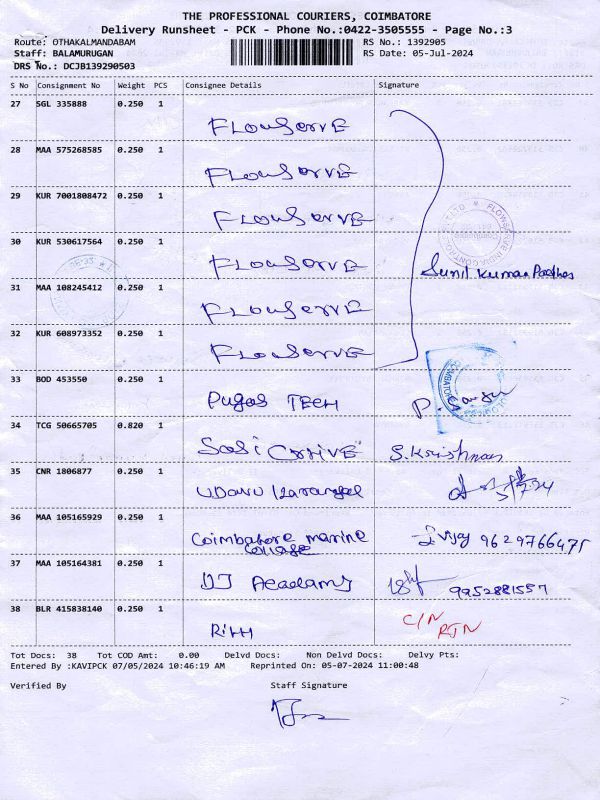 THE PROFESSIONAL COURIERS, COIMBATORE
Delivery Runsheet - PCK - Phone No.:0422-3505555 - Page No.:3
Route: OTHAKALMANDABAM RS No.: 1392905
Staff: BALAMURUGAN RS Date: 05-Jul-2024
DRS No.: DCJB139290503
S No Consignment No Weight PCS Consignee Details Signature
27 SGL 335888 0.250 1
Flowserve
28 MAA 575268585 0.250 1
Flowserve
29 KUR 7001808472 0.250 1
Flowserve
30 KUR 530617564 0.250 1
Flowserve
Sunil Kumar
31 MAA 108245412 0.250 1
Flowserve
32 KUR 608973352 0.250 1
Flowserve
33 BOD 453550 0.250 1
Pugos TECH
34 TCG 50665705 0.820 1
Sasi S.Krishnan
35 CNR 1806877 0.250 1
36 MAA 105165929 0.250 1
Coimbatore marine Vijay 9629766475
collage
37 MAA 105164381 0.250 1
DJ Academy 9952881557
38 BLR 415838140 0.250 1
C/N
RTN
Tot Docs: 38 Tot COD Amt: 0.00 Delvd Docs: Non Delvd Docs: Delvy Pts:
Entered By :KAVIPCK 07/05/2024 10:46:19 AM Reprinted On: 05-07-2024 11:00:48
Verified By Staff Signature